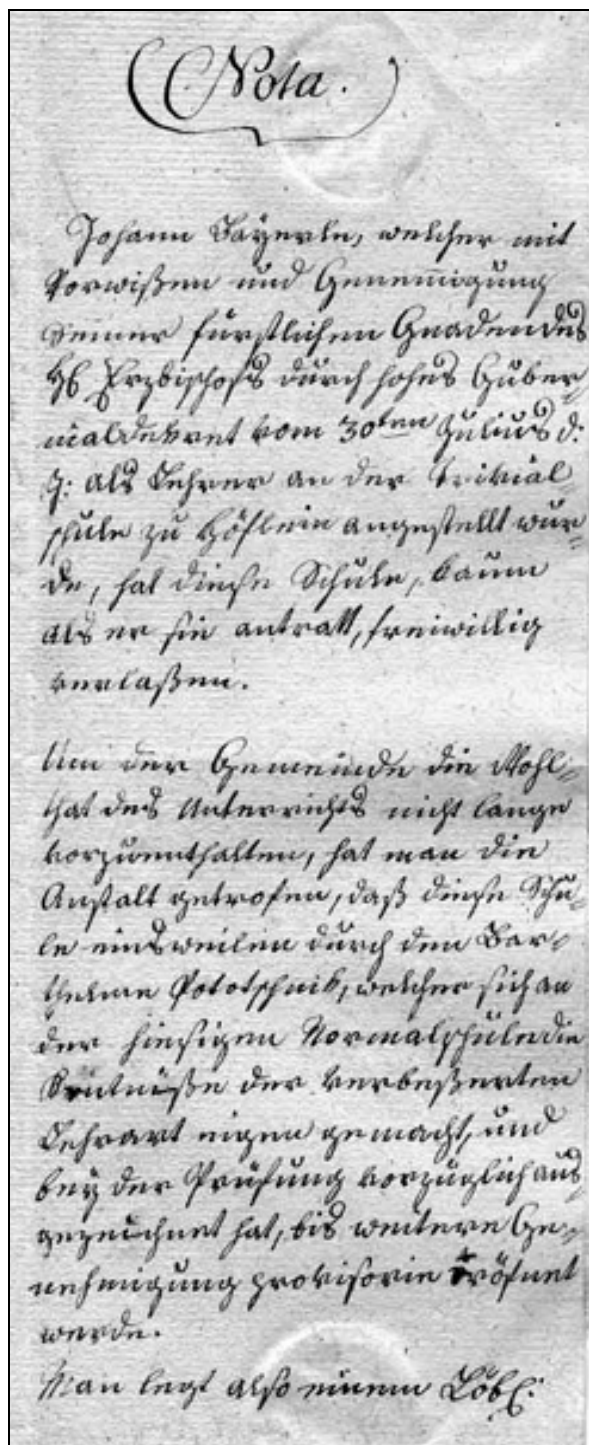 Nota.
Johann Bayerle, welcher mit
Vorwißen und Genemigung
Seiner fürstlichen Gnaden des
H. Erzbischofs durch hohes Guber-
nialdekret vom 30ten Julius d:
J: als Lehrer an der Trivial-
schule zu Höflein angestellt wur-
de, hat diese Schule, kaum
als er sie antratt, freiwillig
verlaßen.
Um der Gemeinde die Wohl-
that des Unterrichts nicht lange
vorzuenthalten, hat man die
Anstalt getrofen, daß diese Schu-
le einsweilen durch den Bar-
thelme Pototschnik, welcher sich an
der hiesigen Normalschule die
Kentniße der verbeßerten
Lehrart eigen gemacht, und
bey der Prüfung vorzüglich aus-
gezeichnet hat, bis weitere Ge-
nehmigung provisorie eröfnet
werde.
Man legt also einem Löbl: